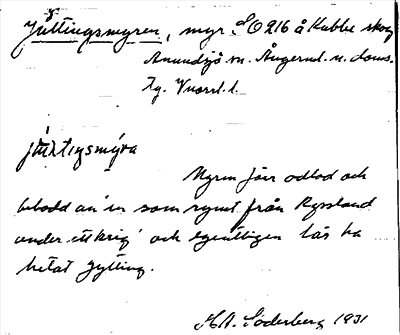 Jyttingsmyren, myr SO 216 å Kubbe skog
Anundsjö sn. Ångerml. n. doms.
Tg. Vnorrl. l.
Myren förr odlad och
bebodd av 'en som rymt från Ryssland
under ett krig' och egentligen läs ha
hetat Jytting.
H.A. Söderberg 1931